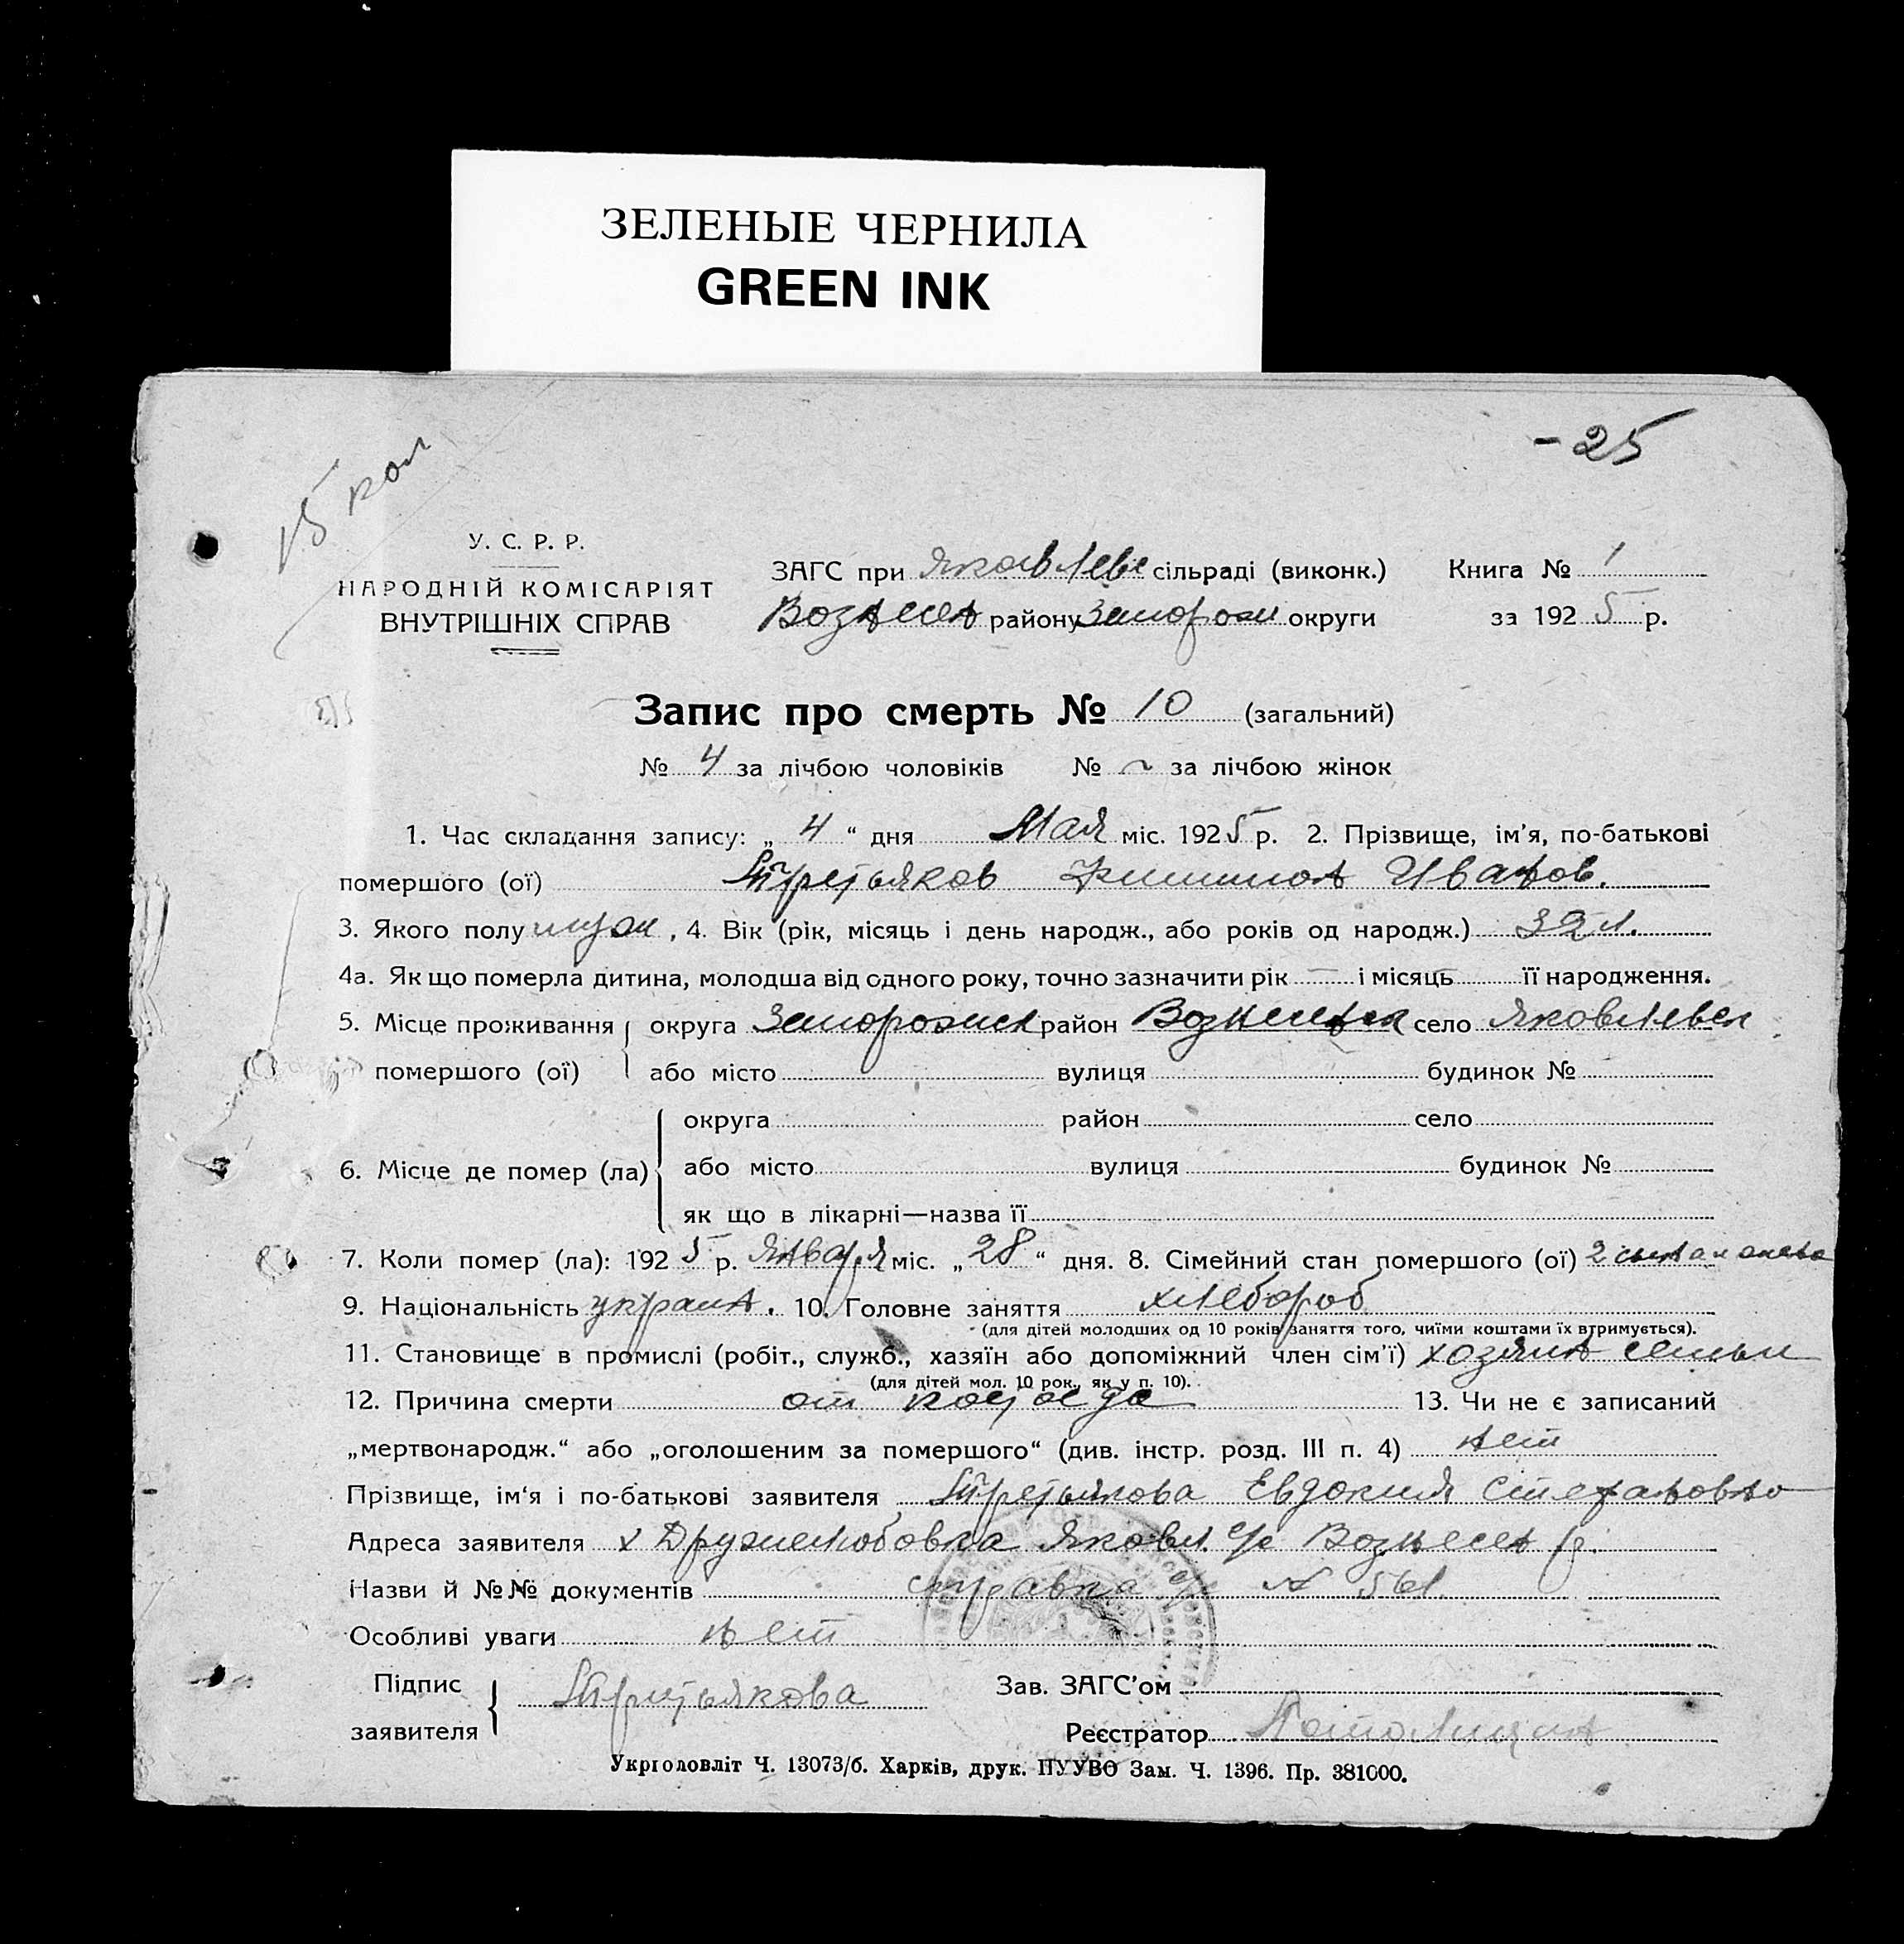 ЗЕЛЕНЫЕ ЧЕРНИЛА
GREEN INK
-25
15 коп
У. С. Р. Р.
НАРОДНІЙ КОМІСАРІЯТ
ВНУТРІШНІХ СПРАВ
ЗАГС при Яковлеве сільраді (виконк.)
Вознесен району Запорож округи
Книга № 1
за 1925 р.
Запис про смерть № 10 (загальний)
№ 4 за лічбою чоловіків № ~ за лічбою жінок
1. Час складання запису: „ 4 “ дня Мая міс. 1925 р. 2. Прізвище, ім'я, по-батькові
помершого (ої) Третьяков Филипп Иванов.
3. Якого полу муж, 4. Вік (рік, місяць і день народж., або років од народж.) 32 л.
4а. Як що померла дитина, молодша від одного року, точно зазначити рік — і місяць її народження.
5. Місце проживання округа Запорожск район Вознесенск село Яковлевск
помершого (ої) або місто вулиця будинок №
округа район село
6. Місце де помер (ла) або місто вулиця будинок №
як що в лікарні—назва її
7. Коли помер (ла): 1925 р. Января міс. „ 28 “ дня. 8. Сімейний стан помершого (ої) 2 сына и жена
9. Національність украин. 10. Головне заняття хлебороб
(для дітей молодших од 10 років заняття того, чиїми коштами їх втримується).
11. Становище в промислі (робіт., служб., хазяїн або допоміжний член сім'ї) хозяин семьи
(для дітей мол. 10 рок., як у п. 10).
12. Причина смерти от 13. Чи не є записаний
„мертвонародж.“ або „оголошеним за помершого“ (див. інстр. розд. III п. 4) нет
Прізвище, ім'я і по-батькові заявителя Третьякова Евдокия Степановна
Адреса заявителя х Дружелюбовка Яковл. с/с Вознесен р.
Назви й №№ документів справка с/с № 561
Особливі уваги нет
Підпис заявителя Третьякова
Зав. ЗАГС'ом
Реєстратор
Укрголовліт Ч. 13073/б. Харків, друк. ПУУВО Зам. Ч. 1396. Пр. 381000.